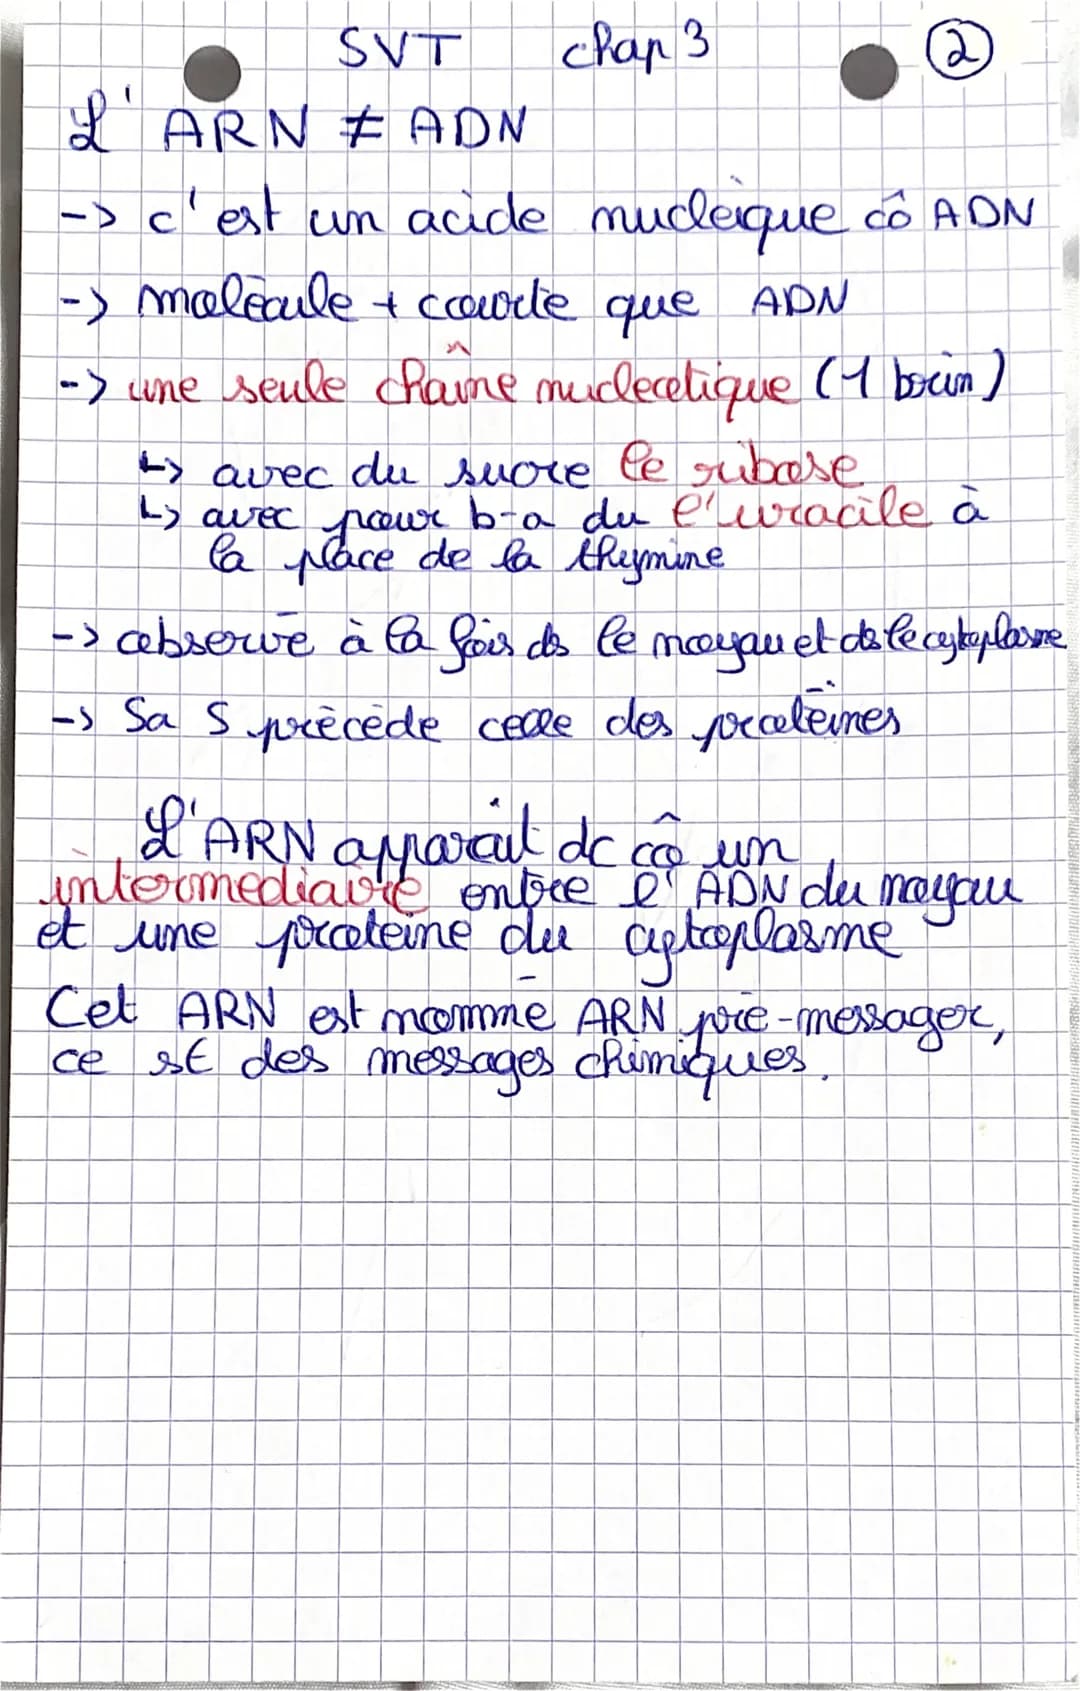 SVT chap 3 ②
L'ARN ≠ ADN
-> c'est un acide nucléique cô ADN
-> molécule + courte que ADN
-> une seule chaîne nucleotique (1 brin)
↳ avec du sucre le ribose
↳ avec pour b-a du l'uracile à
la place de la thymine
-> observé à la fois ds le noyau et ds le cytoplasme
-> Sa S précède celle des protéines
L'ARN apparait dc cô un
intermédiaire entre l'ADN du noyau
et une proteine du cytoplasme
Cet ARN est nommé ARN pré-messager,
ce st des messages chimiques.